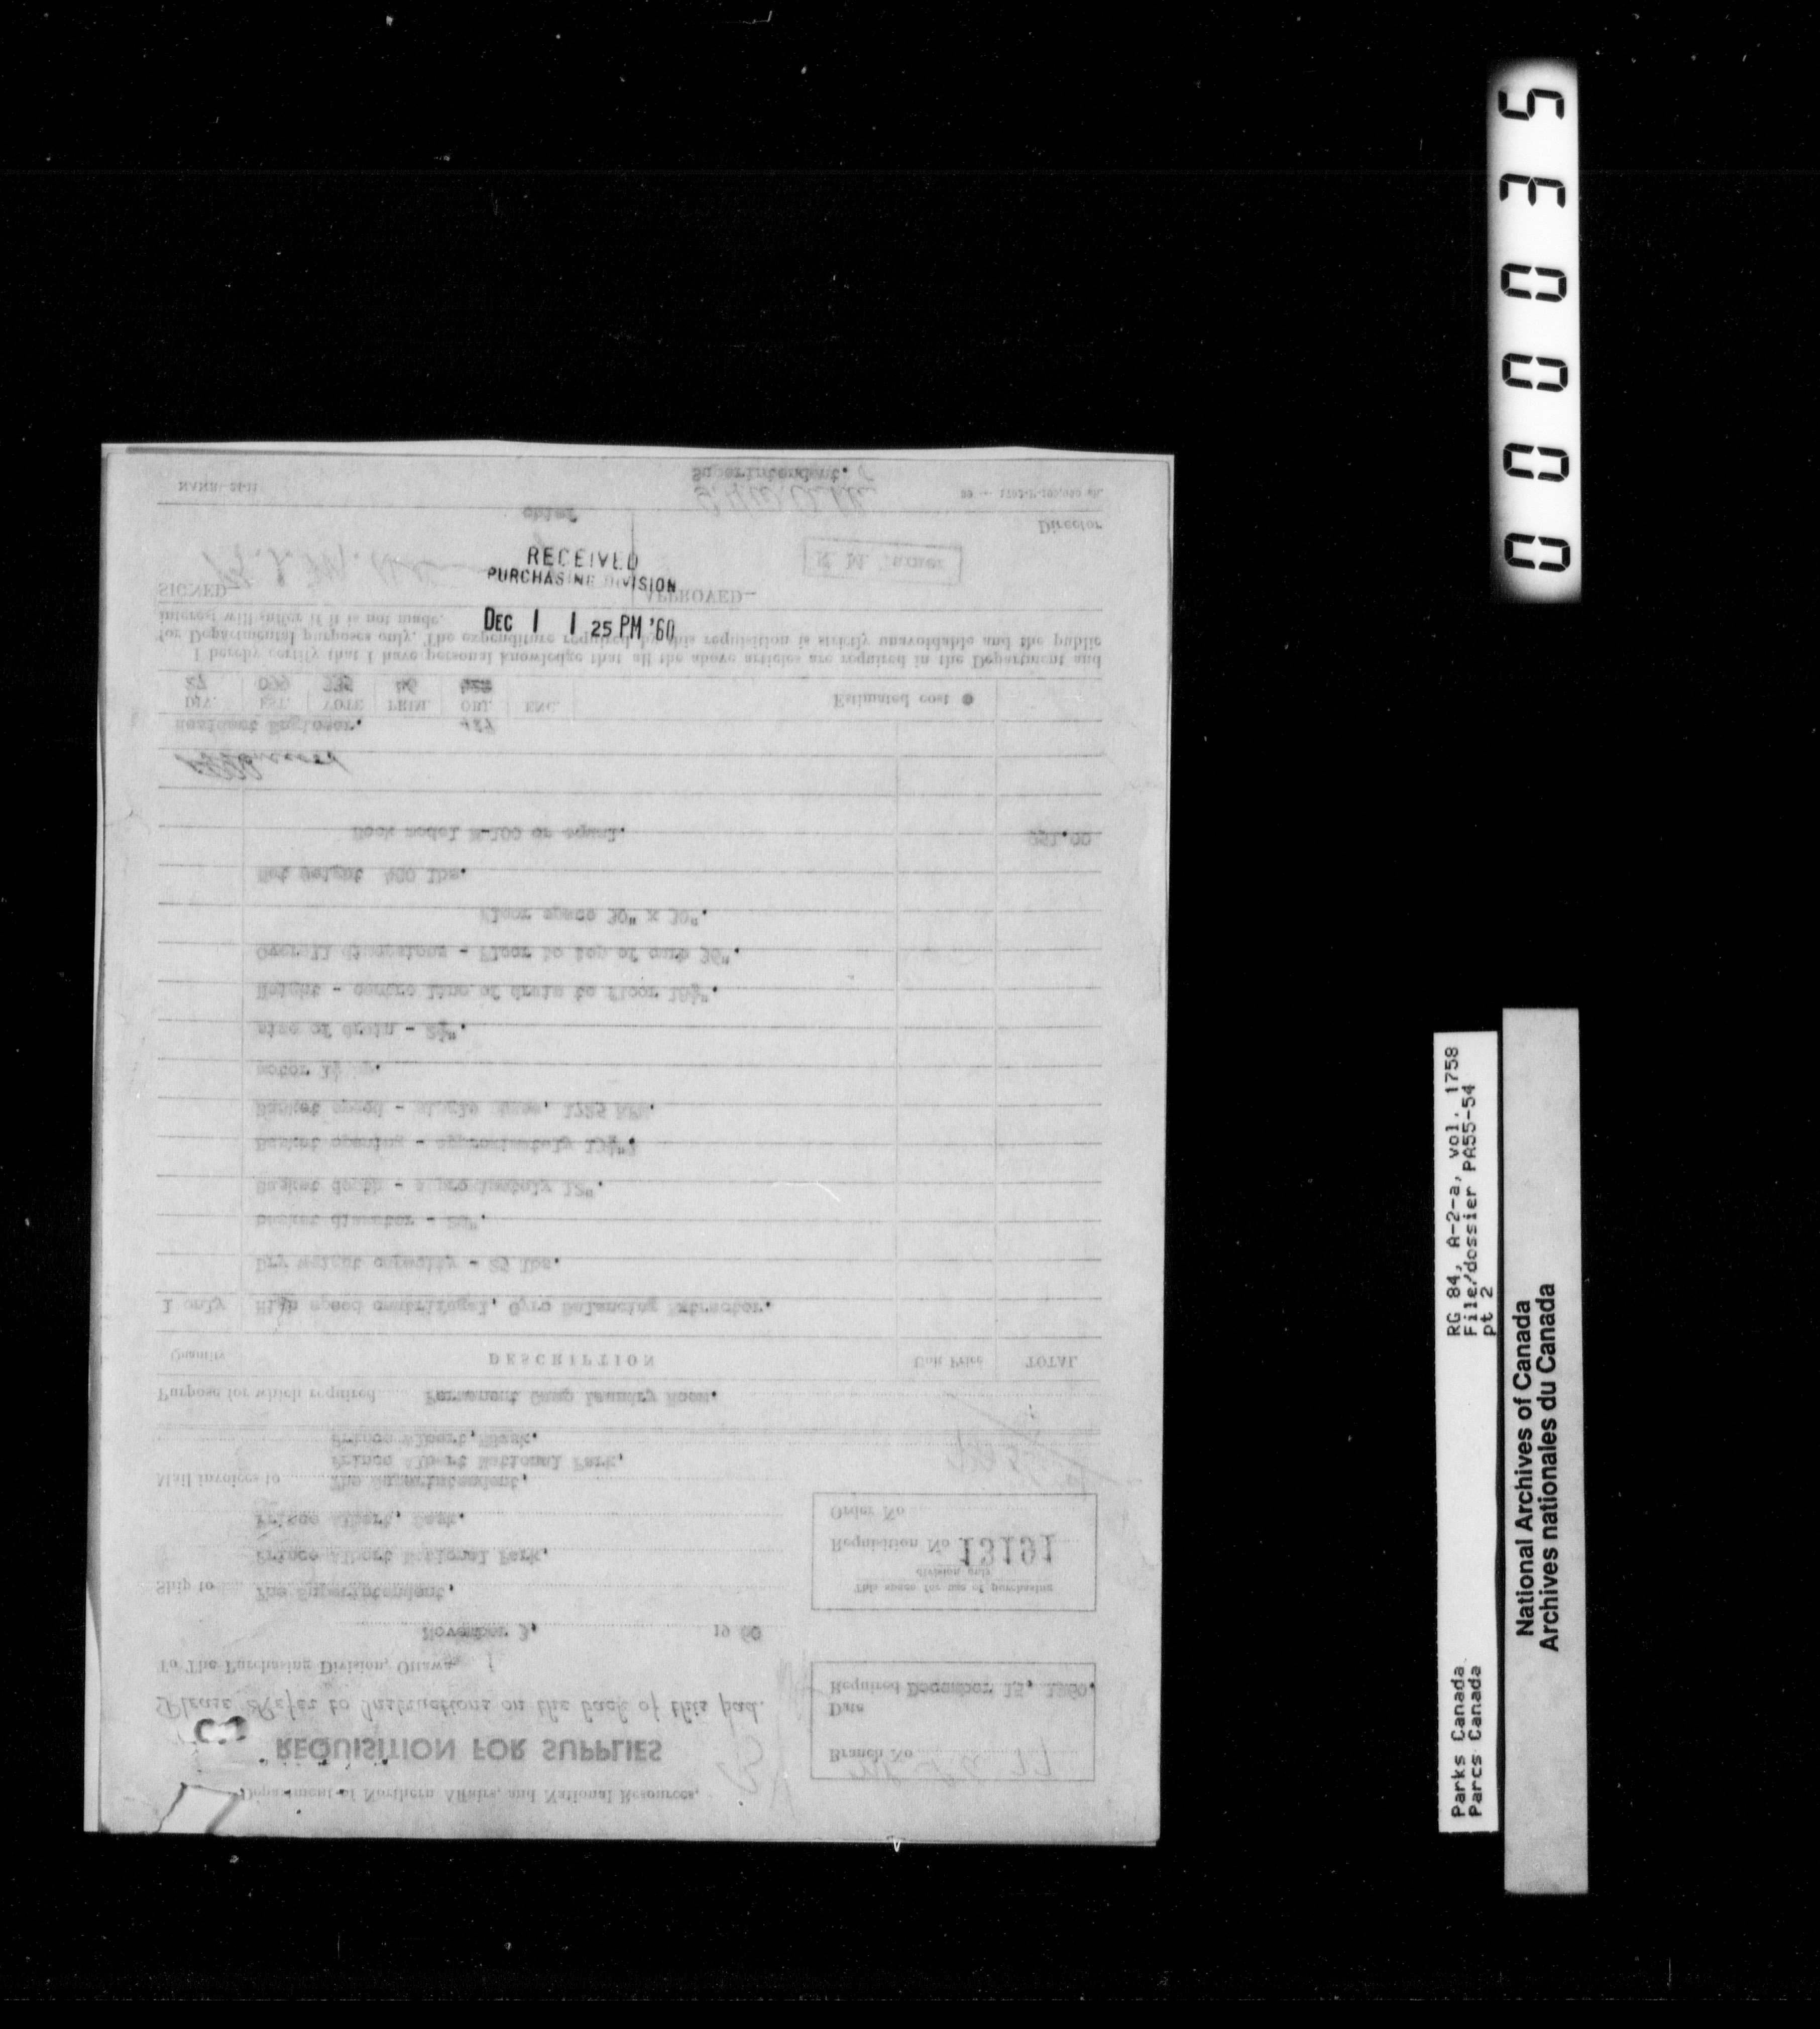 RECEIVED
PURCHASING DIVISION
DEC 1 1 25 PM '60
Department of Northern Affairs, and National Resources,
REQUISITION FOR SUPPLIES
Please Refer to Instructions on the back of this pad.
To The Purchasing Division, Ottawa
November 3, 19 60
Branch No
Date
Required December 15, 1960.
Ship to The Superintendent,
Prince Albert National Park,
Prince Albert, Sask.
This space for use of purchasing
division only
Requisition No 13191
Order No
Mail invoices to The Superintendent,
Prince Albert National Park,
Prince Albert, Sask.
Purpose for which required Permanent Camp Laundry Room.
Quantity DESCRIPTION Unit Price TOTAL
1 only High speed centrifugal, Gyro Balancing Extractor.
Dry weight capacity - 25 lbs.
Basket diameter - 20".
Basket depth - approximately 12".
Basket opening - approximately
Basket speed - single
Motor
size of drain -
Height - centre line of drain to floor
Overall dimensions - Floor to top of curb 36".
Floor space 30" x 30".
Net Weight
Bock model or equal.
Resident Engineer.
427
DIV. EST. VOTE PRIM. OBJ. ENC. Estimated cost
I hereby certify that I have personal knowledge that all the above articles are required in the Department and
for Departmental purposes only. The expenditure required by this requisition is strictly unavoidable and the public
interest will suffer if it is not made.
SIGNED— APPROVED—
Chief
Director
Superintendent.
000035
RG 84, A-2-a, vol. 1758
File/dossier PA55-54
pt 2
Parks Canada
Parcs Canada
National Archives of Canada
Archives nationales du Canada